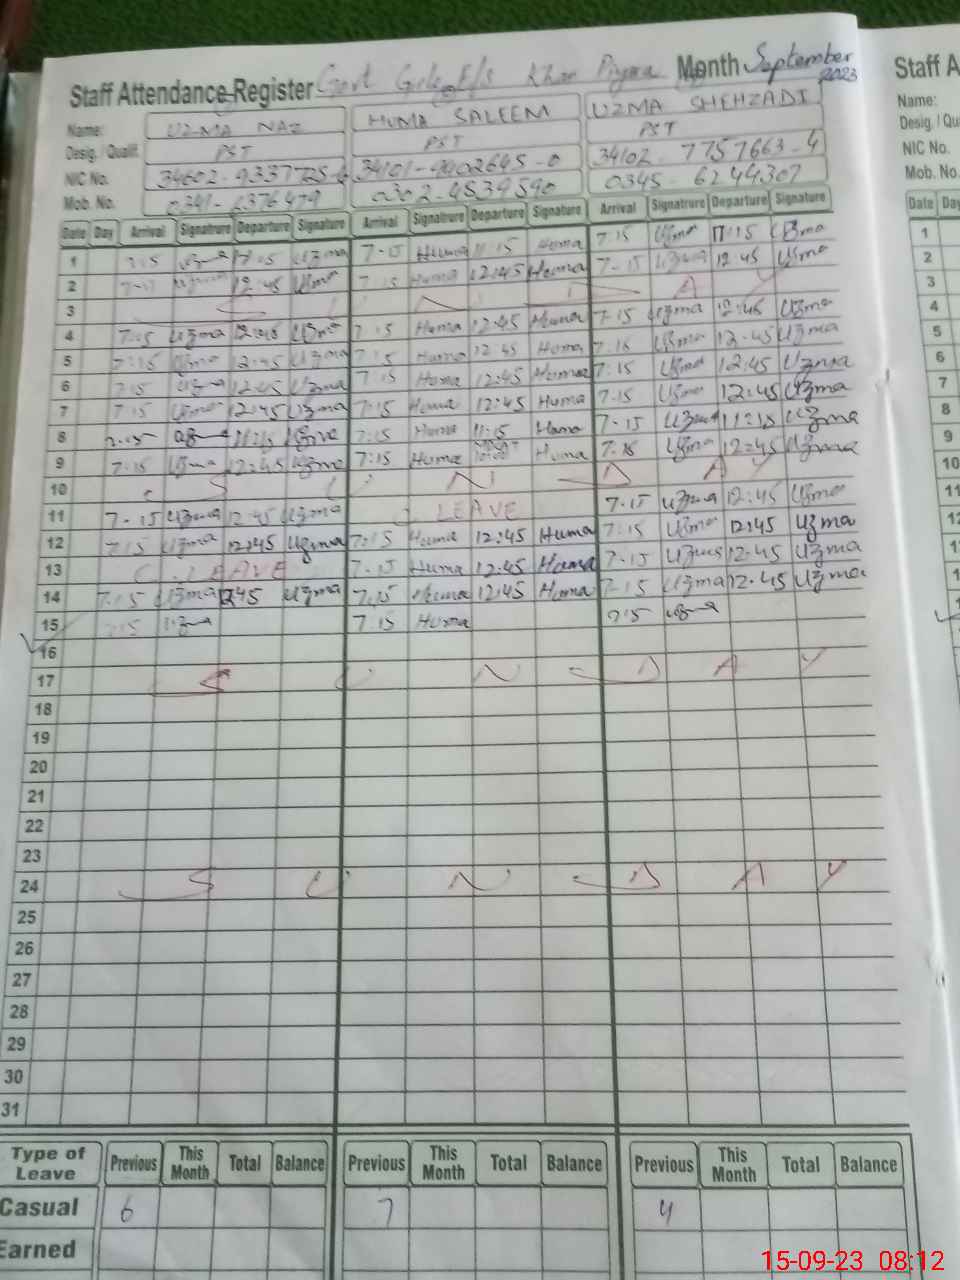 Staff Attendance Register Govt Girls E/S Khan Piyara Month September 2023
Staff A
Name: UZMA NAZ HUMA SALEEM UZMA SHEHZADI
Name:
Desig. / Qualif. PST PST PST
Desig. / Qua
NIC No. 34602-9337725- 34101-9402645-0 34102-7757663-4
NIC No.
Mob. No. 0341-6376479 0302-4539590 0345-6244307
Mob. No.
Date Day Arrival Signatrure Departure Signature Arrival Signatrure Departure Signature Arrival Signatrure Departure Signature
Date Day
1 7:15 Uzma 11:15 Uzma 7-15 Huma 11:15 Huma 7:15 Uzma 11:15 Uzma
2 7-15 Uzma 12:45 Uzma 7:15 Huma 12:45 Huma 7-15 Uzma 12:45 Uzma
3 S U N D A Y
4 7:15 Uzma 12:45 Uzma 7:15 Huma 12:45 Huma 7-15 Uzma 12:45 Uzma
5 7:15 Uzma 12:45 Uzma 7:15 Huma 12:45 Huma 7:15 Uzma 12:45 Uzma
6 7:15 Uzma 12:45 Uzma 7:15 Huma 12:45 Huma 7:15 Uzma 12:45 Uzma
7 7:15 Uzma 12:45 Uzma 7:15 Huma 12:45 Huma 7:15 Uzma 12:45 Uzma
8 7:15 Uzma 11:15 Uzma 7:15 Huma 11:15 Huma 7-15 Uzma 11:15 Uzma
9 7:15 Uzma 12:45 Uzma 7:15 Huma Huma 7:15 Uzma 12:45 Uzma
10 S U N D A Y
11 7-15 Uzma 12:45 Uzma C. LEAVE 7-15 Uzma 12:45 Uzma
12 7:15 Uzma 12:45 Uzma 7:15 Huma 12:45 Huma 7:15 Uzma 12:45 Uzma
13 C. LEAVE 7-15 Huma 12:45 Huma 7-15 Uzma 12-45 Uzma
14 7:15 Uzma 1245 Uzma 7:15 Huma 12:45 Huma 7-15 Uzma 12-45 Uzma
15 7:15 Uzma 7:15 Huma 7:15 Uzma
16
17 S U N D A Y
18
19
20
21
22
23
24 S U N D A Y
25
26
27
28
29
30
31
Type of Leave Previous This Month Total Balance Previous This Month Total Balance Previous This Month Total Balance
Casual 6 7 4
Earned
15-09-23 08:12